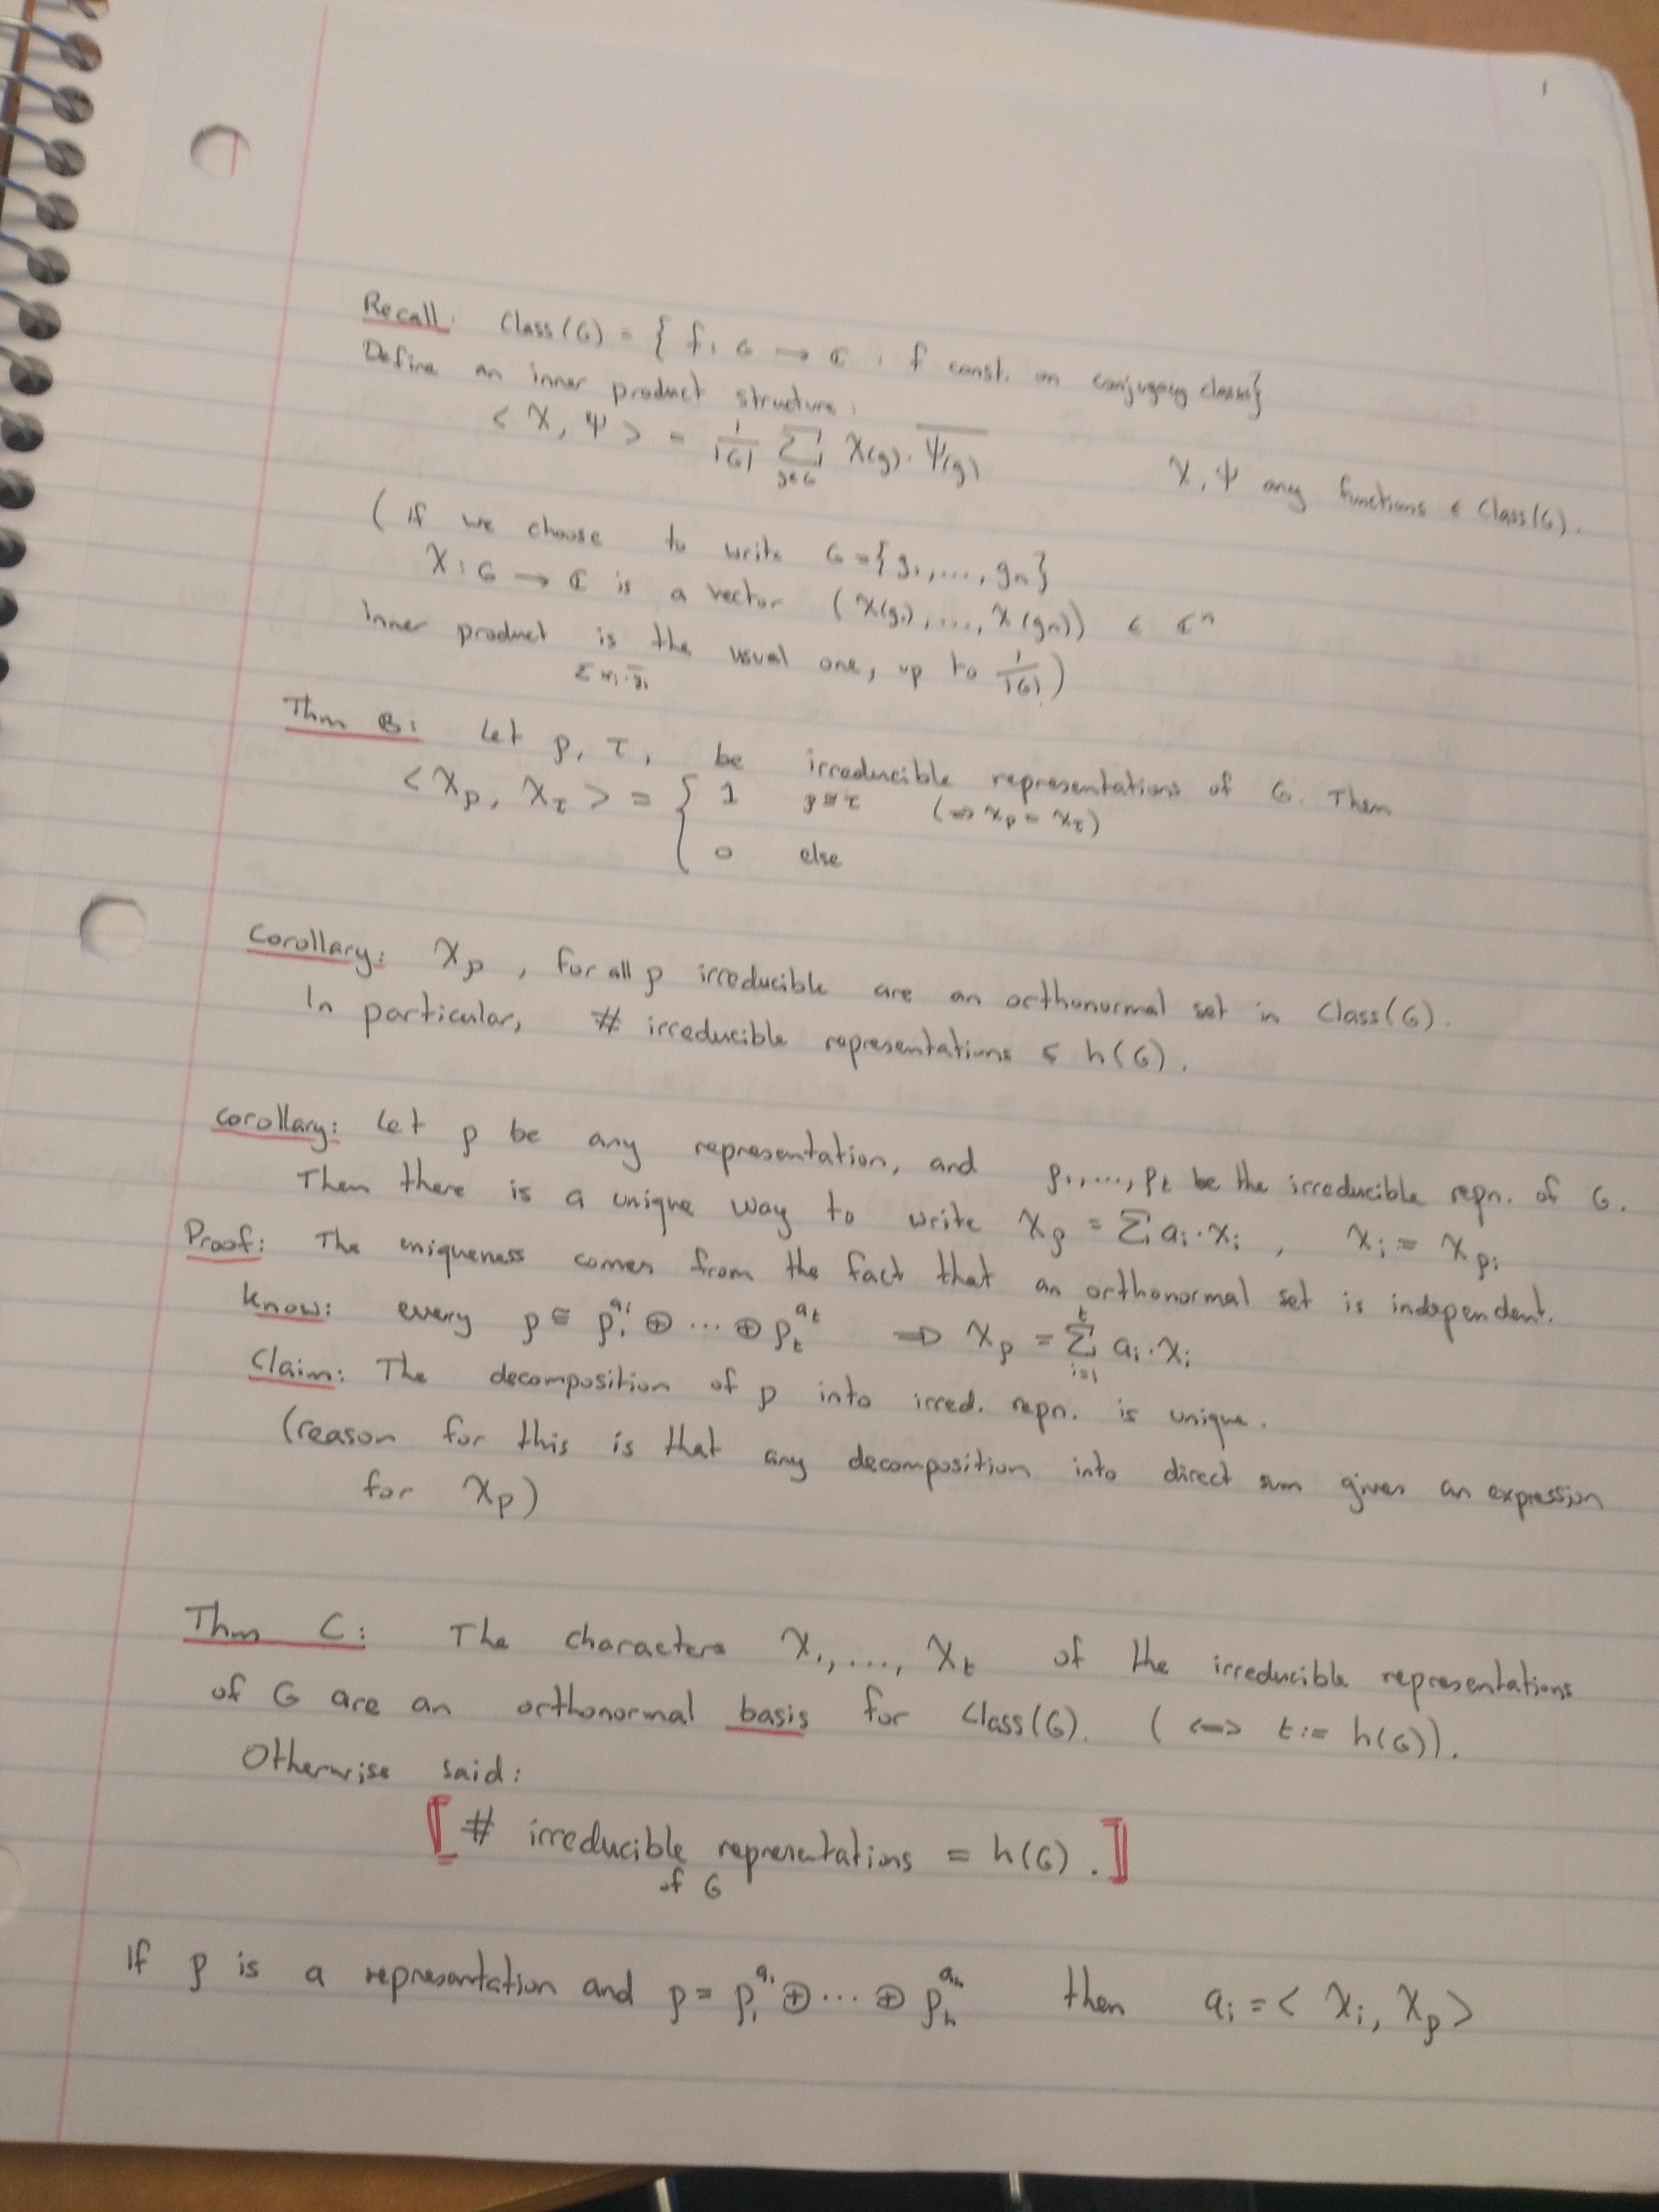 Recall: Class(G) = { f: G → ℂ : f const. on conjugacy classes}
Define an inner product structure:
< χ, ψ > = 1/|G| Σ_{g∈G} χ(g) · \overline{ψ(g)}   χ, ψ any functions ∈ Class(G).
( if we choose to write G = {g₁, ..., gₙ}
χ: G → ℂ is a vector (χ(g₁), ..., χ(gₙ)) ∈ ℂⁿ
inner product is the usual one, up to 1/|G| )
Σ xᵢ · \overline{yᵢ}
Thm B: Let ρ, τ, be irreducible representations of G. Then
< χ_ρ, χ_τ > = { 1   ρ ≅ τ   (⇒ χ_ρ = χ_τ)
0   else
Corollary: χ_ρ, for all ρ irreducible are an orthonormal set in Class(G).
In particular, # irreducible representations ≤ h(G).
Corollary: Let ρ be any representation, and ρ₁, ..., ρ_t be the irreducible repn. of G.
Then there is a unique way to write χ_ρ = Σ aᵢ · χᵢ , χᵢ = χ_{ρᵢ}
Proof: The uniqueness comes from the fact that an orthonormal set is independent.
Know: every ρ ≅ ρ₁^{a₁} ⊕ ... ⊕ ρ_t^{a_t} ⇒ χ_ρ = Σ_{i=1}^{t} aᵢ · χᵢ
Claim: The decomposition of ρ into irred. repn. is unique.
(reason for this is that any decomposition into direct sum gives an expression
for χ_ρ)
Thm C: The characters χ₁, ..., χ_t of the irreducible representations
of G are an orthonormal basis for Class(G). ( ⇔ t := h(G)).
Otherwise said:
[ # irreducible representations = h(G) . ]
of G
If ρ is a representation and ρ = ρ₁^{a₁} ⊕ ... ⊕ ρ_h^{a_h} then aᵢ = < χᵢ, χ_ρ >